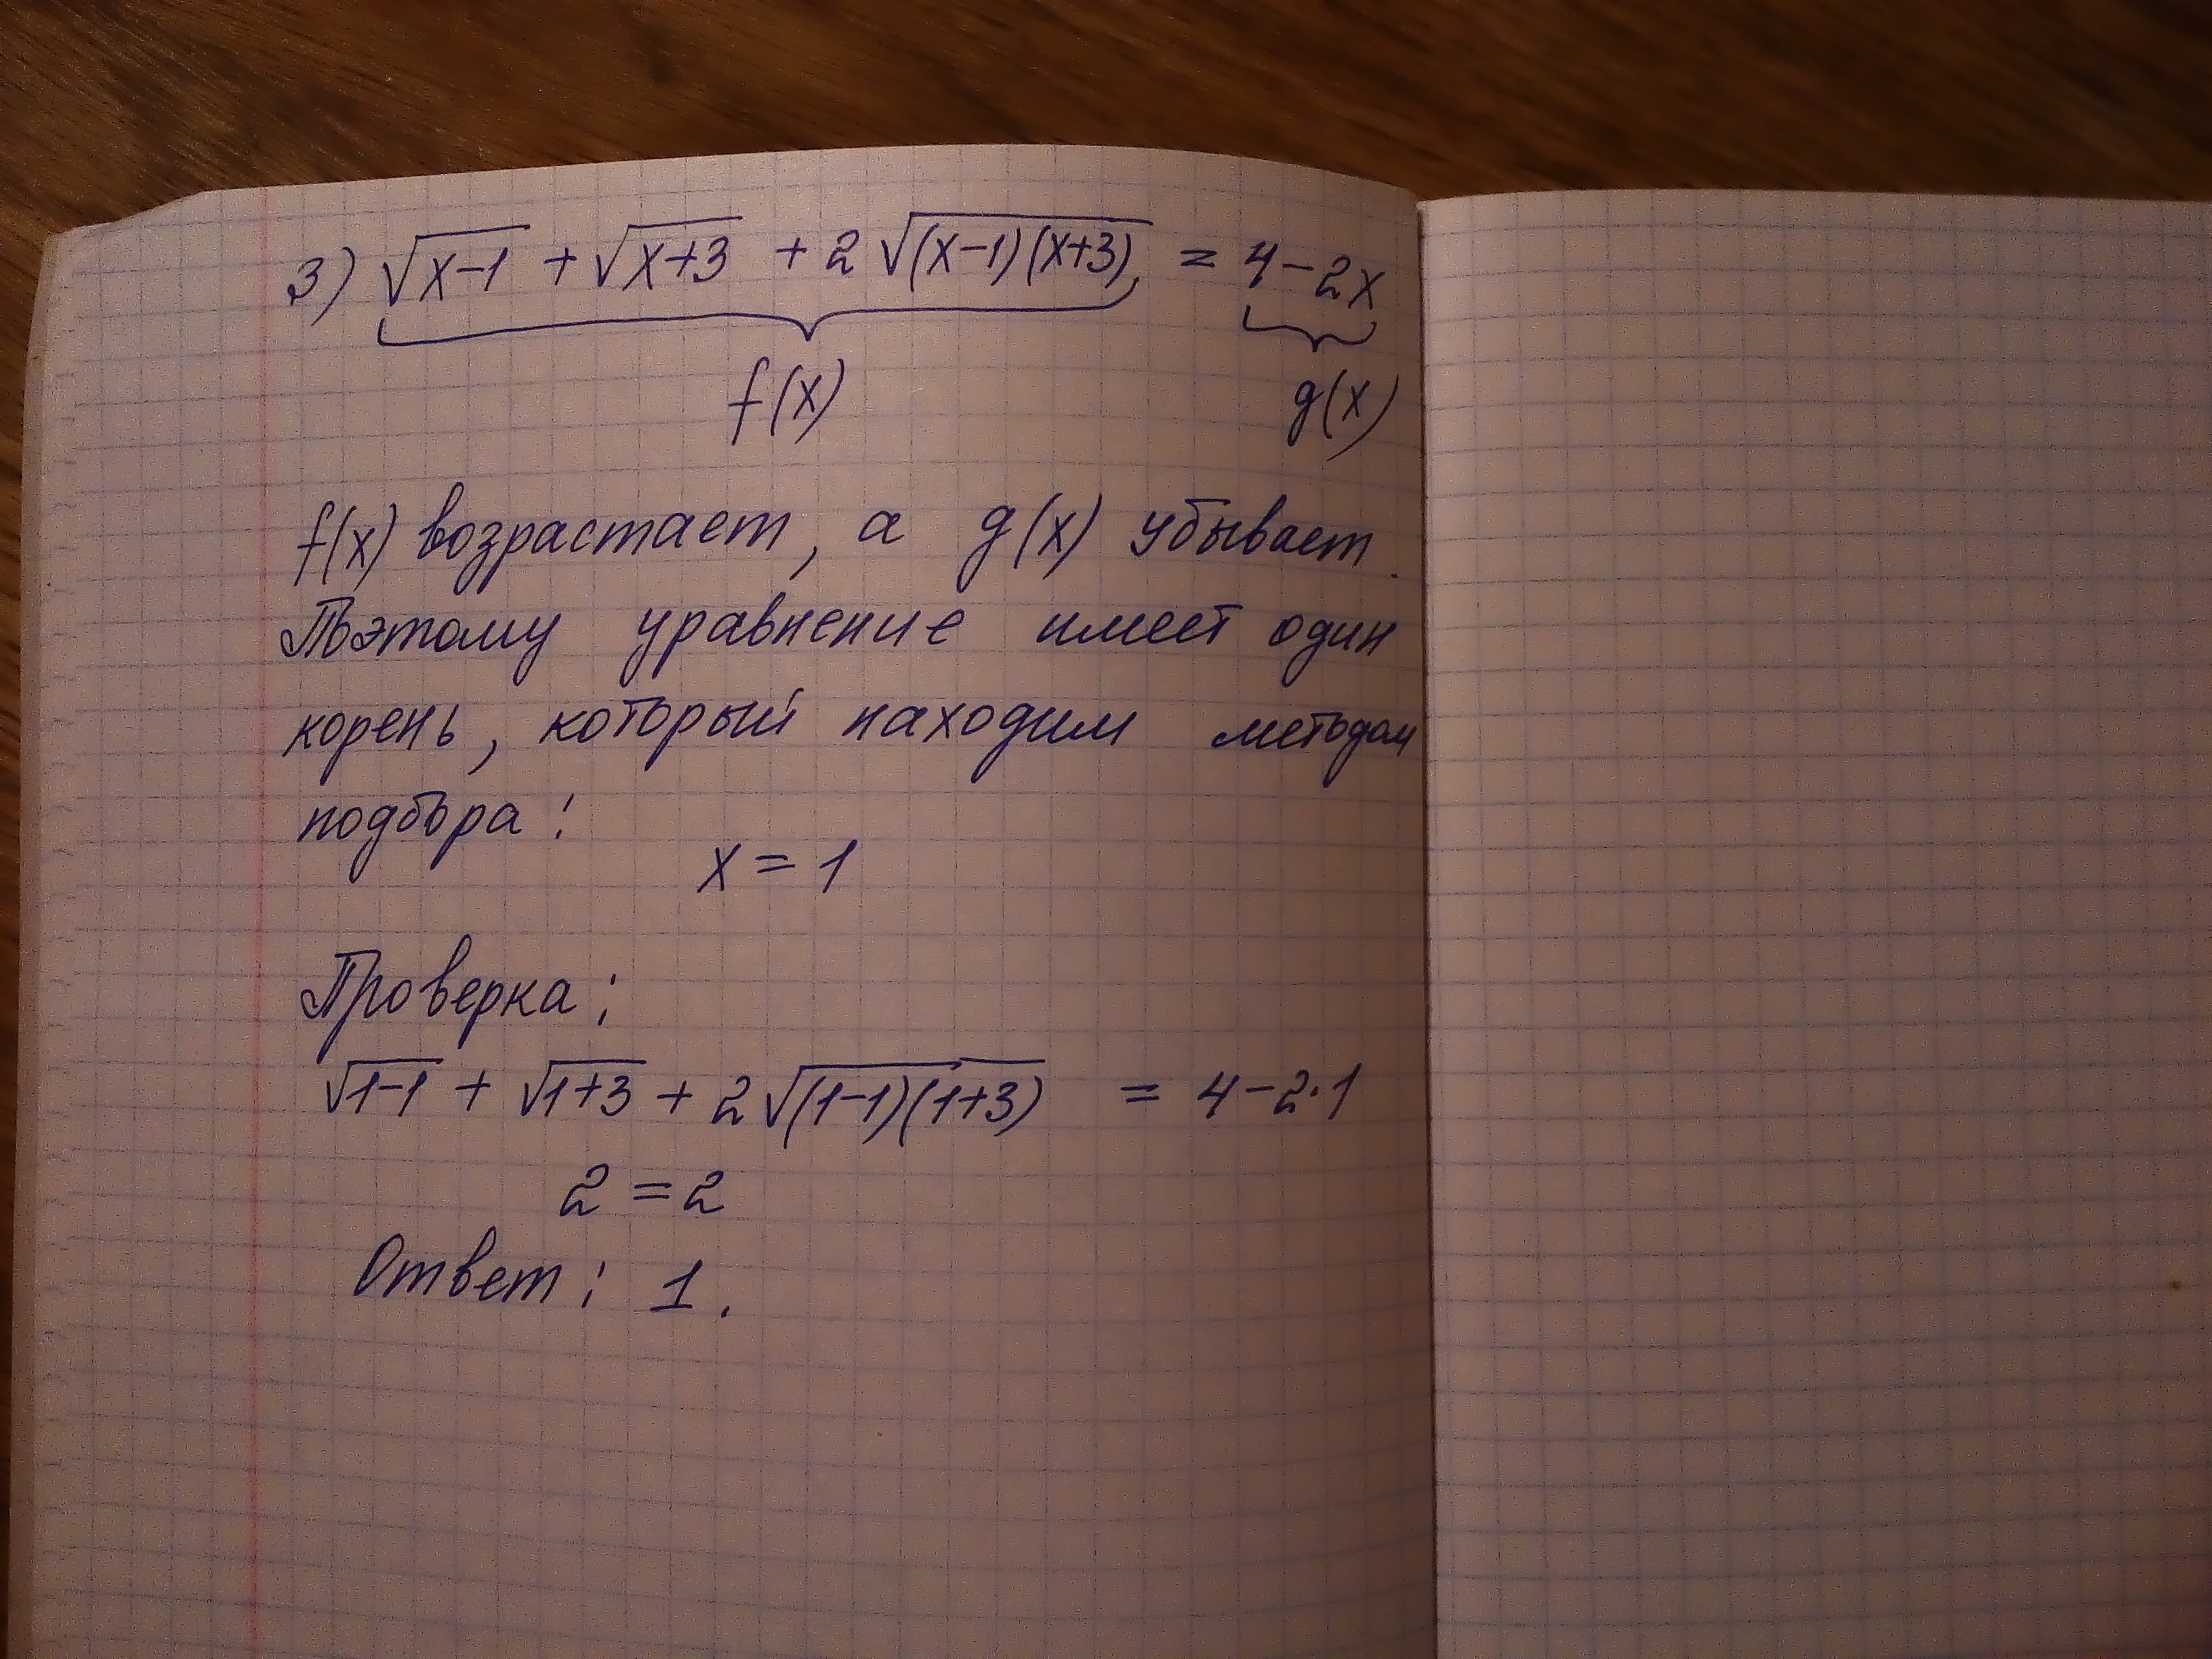 3) √(x-1) + √(x+3) + 2√((x-1)(x+3)) = 4-2x
f(x) g(x)
f(x) возрастает, а g(x) убывает.
Поэтому уравнение имеет один
корень, который находим методом
подбора:
x = 1
Проверка:
√(1-1) + √(1+3) + 2√((1-1)(1+3)) = 4-2·1
2 = 2
Ответ: 1.